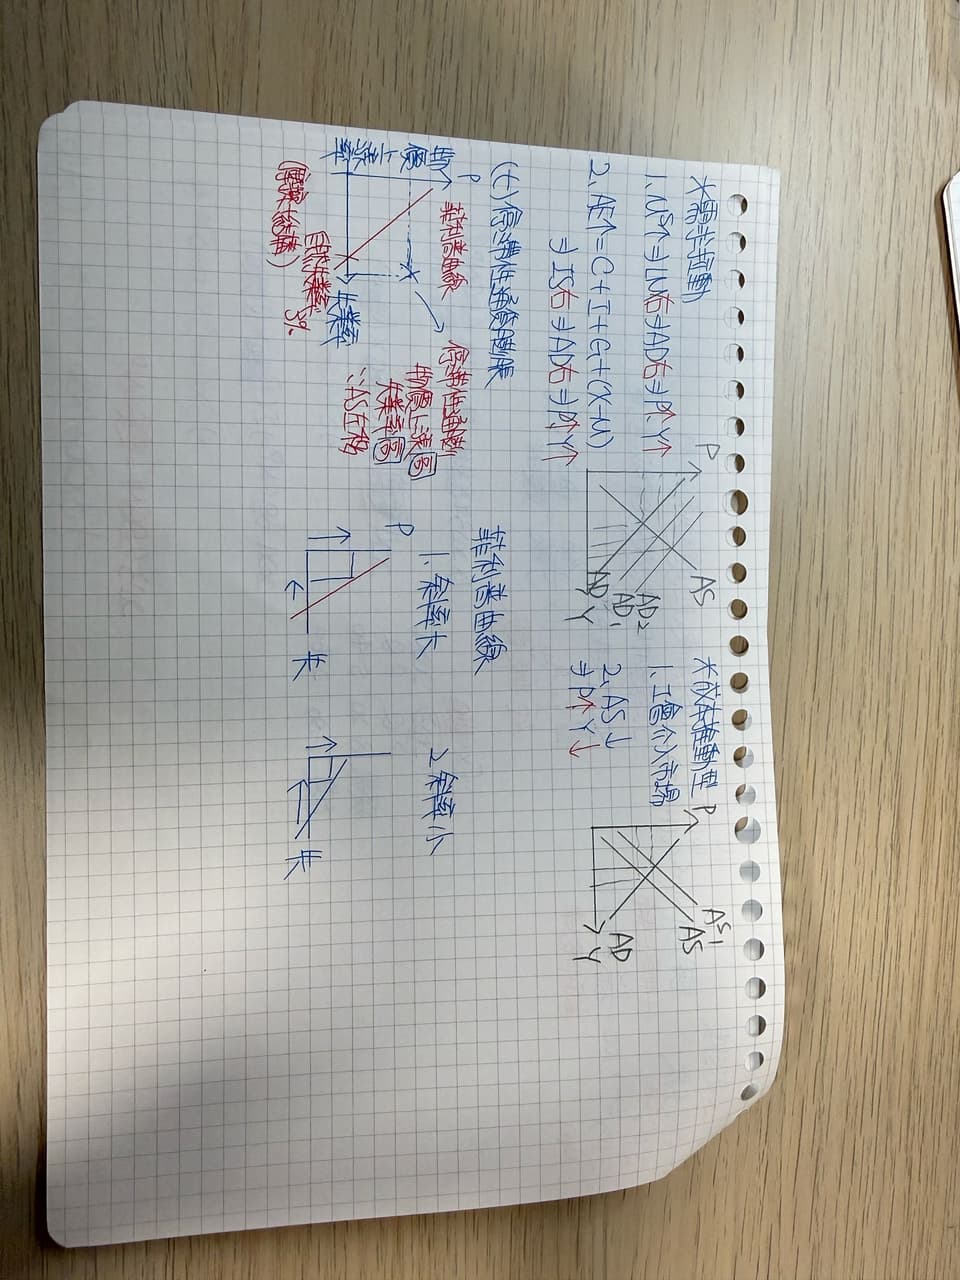 *需求拉動
1. M↑⇒LM右⇒AD右⇒P↑Y↑
2. AE↑=C+I+G+(X-M)
⇒IS右⇒AD右⇒P↑Y↑
P
AS
AD2
AD1
AD
Y
*成本推動型
1. 工會介入市場
2. AS↓
⇒P↑Y↓
P
AS1
AS
AD
Y
(七)停滯性通貨膨脹
P
菲利普曲線
物價上漲率
失業率
自然失業率5%
停滯性通膨
物價上漲高
失業率高
∴AS左移
菲利普曲線
1. 斜率大
P
失
2. 斜率小
失